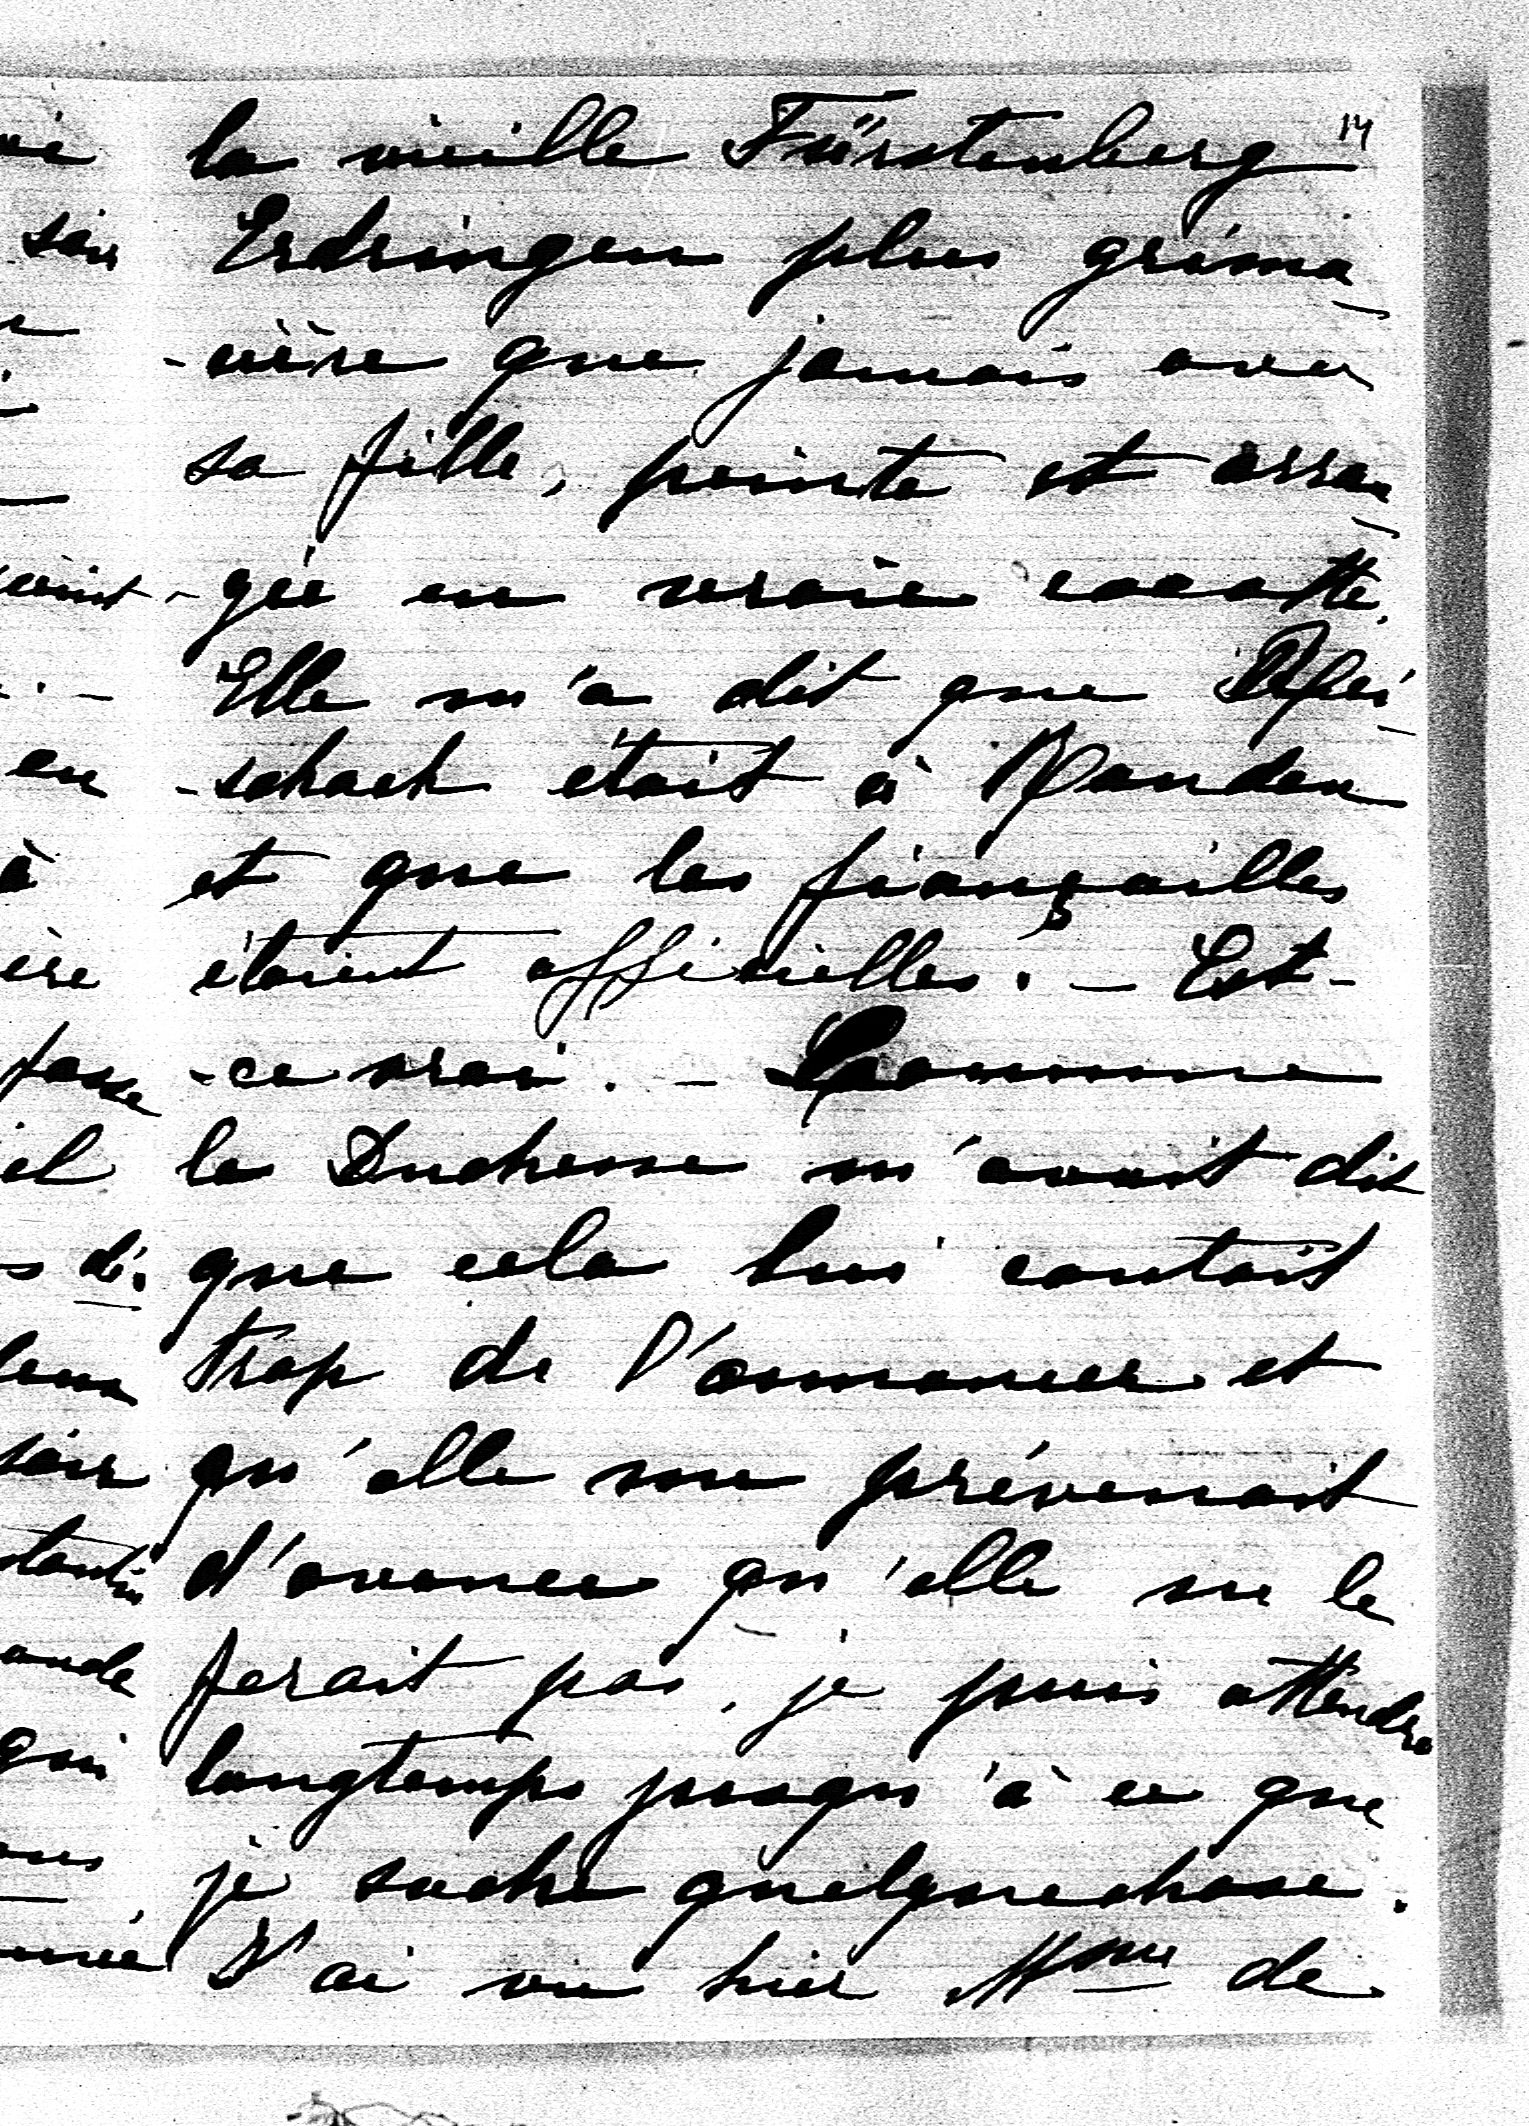 14
la vieille Fürstenberg
Erdringen plus grima
-cière que jamais avec
sa fille, peinte et arran
-gée en vraie cocotte.
Elle m'a dit que
-schach était à
et que les fiançailles
étaient officielles. - Est-
-ce vrai. - Comme
la Duchesse m'avait dit
que cela lui coutait
trop de l'annoncer et
qu'elle me prévenait
d'avance qu'elle ne le
ferait pas, je puis attendre
longtemps jusqu'à ce que
je sache quelquechose.
J'ai vu hier Mme de